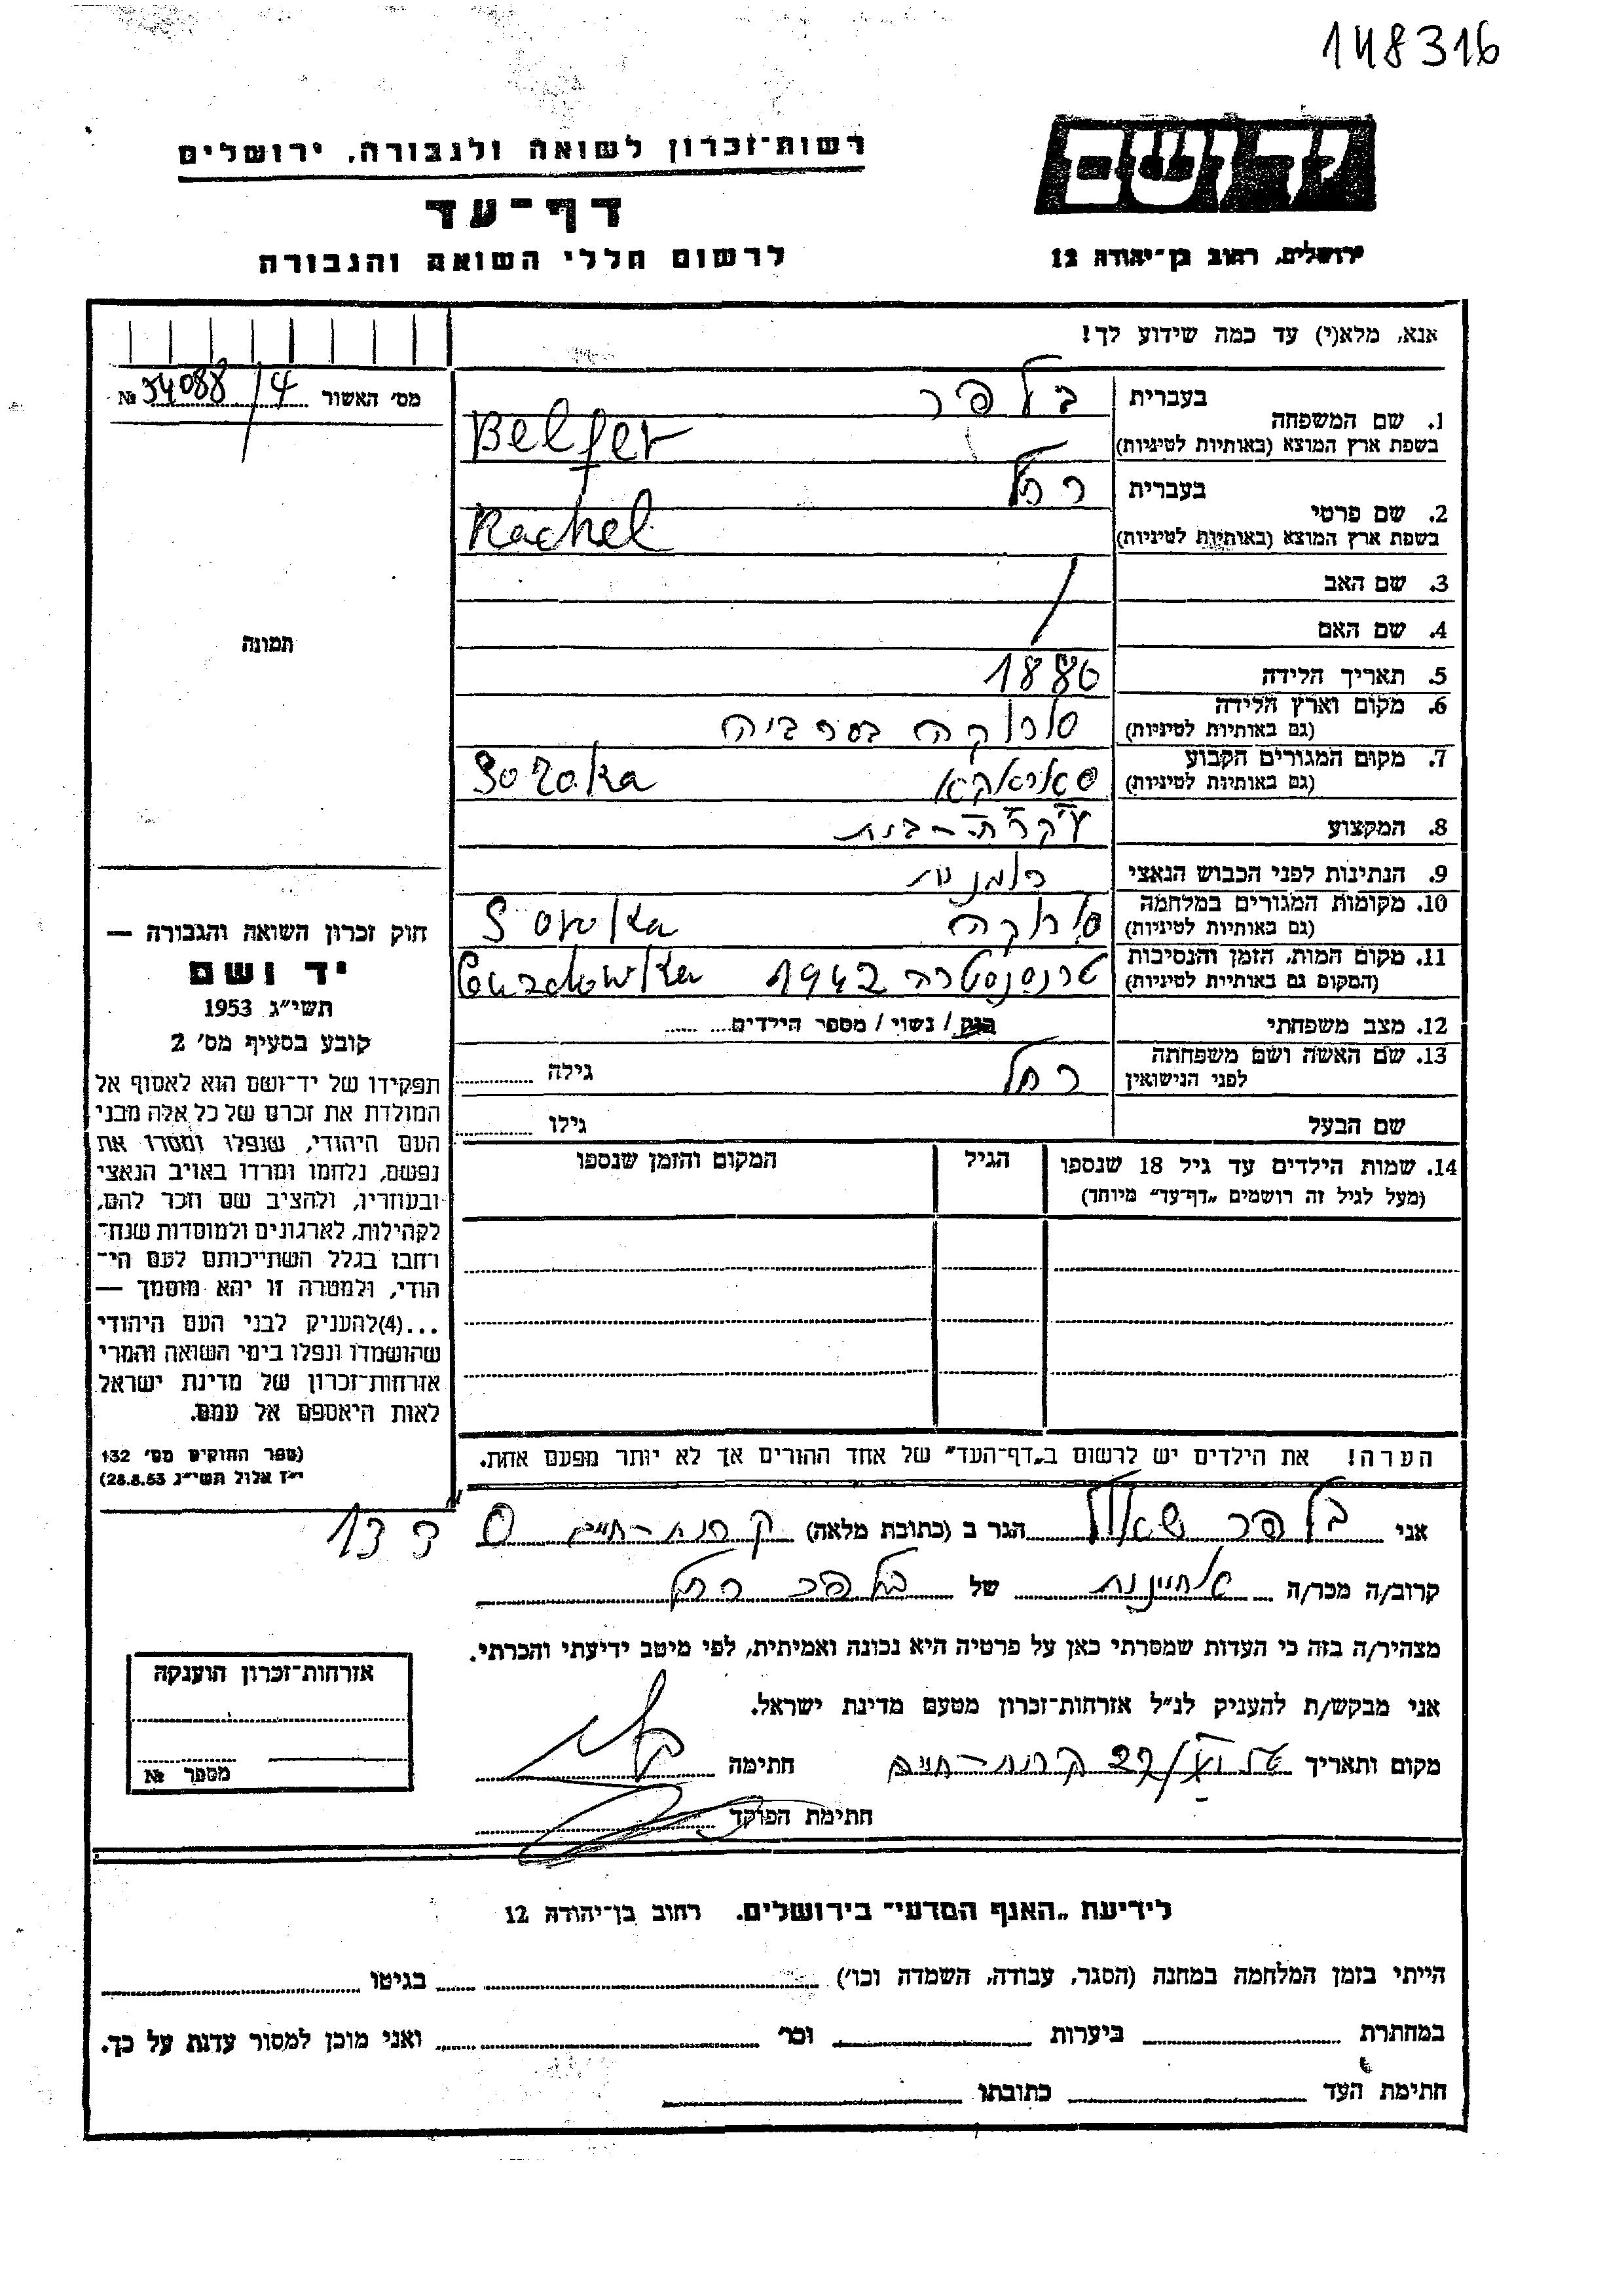 148316
יד ושם
רשות־זכרון לשואה ולגבורה, ירושלים
דף־עד
לרשום חללי השואה והגבורה
ירושלים, רחוב בן־יהודה 12
אנא, מלא(י) עד כמה שידוע לך!
מס' האשור № 54088/4
1. שם המשפחה
בעברית בלפר
בשפת ארץ המוצא (באותיות לטיניות) Belfer
2. שם פרטי
בעברית רחל
בשפת ארץ המוצא (באותיות לטיניות) Rachel
3. שם האב
4. שם האם
5. תאריך הלידה 1886
6. מקום וארץ הלידה סורוקה בסרביה
(גם באותיות לטיניות)
7. מקום המגורים הקבוע Soroka
(גם באותיות לטיניות)
8. המקצוע עקרת-בית
9. הנתינות לפני הכבוש הנאצי רומנית
10. מקומות המגורים במלחמה סורוקה Soroka
(גם באותיות לטיניות)
11. מקום המות, הזמן והנסיבות טרנסנסטריה 1942
(המקום גם באותיית לטיניות)
12. מצב משפחתי רווק / נשוי / מספר הילדים
13. שם האשה ושם משפחתה רחל גילה
לפני הנישואין
שם הבעל גילו
14. שמות הילדים עד גיל 18 שנספו הגיל המקום והזמן שנספו
(מעל לגיל זה רושמים „דף־עד" מיוחד)
הערה! את הילדים יש לרשום ב„דף־העד" של אחד ההורים אך לא יותר מפעם אחת.
תמונה
חוק זכרון השואה והגבורה —
יד ושם
תשי״ג 1953
קובע בסעיף מס' 2
תפקידו של יד־ושם הוא לאסוף אל
המולדת את זכרם של כל אלה מבני
העם היהודי, שנפלו ומסרו את
נפשם, נלחמו ומרדו באויב הנאצי
ובעוזריו, ולהציב שם וזכר להם,
לקהילות, לארגונים ולמוסדות שנח־
רחבו בגלל השתייכותם לעם הי־
הודי, ולמטרה זו יהא מוסמך —
...(4)להעניק לבני העם היהודי
שהושמדו ונפלו בימי השואה והמרי
אזרחות־זכרון של מדינת ישראל
לאות היאספם אל עמם.
(ספר החוקים מס' 132
י״ז אלול תשי״ג 28.8.53)
אני בלפר שאול הגר ב (כתובת מלאה) קרית-חיים
קרוב/ה מכר/ה של בלפר רחל
מצהיר/ה בזה כי העדות שמסרתי כאן על פרטיה היא נכונה ואמיתית, לפי מיטב ידיעתי והכרתי.
אני מבקש/ת להעניק לנ״ל אזרחות־זכרון מטעם מדינת ישראל.
מקום ותאריך קרית-חיים חתימה
חתימת הפוקד
אזרחות־זכרון הוענקה
מספר №
לידיעת „האגף המדעי" בירושלים. רחוב בן־יהודה 12
הייתי בזמן המלחמה במחנה (הסגר, עבודה, השמדה וכו') בגיטו
במחתרת ביערות וכו' ואני מוכן למסור עדות על כך.
חתימת העד כתובתו